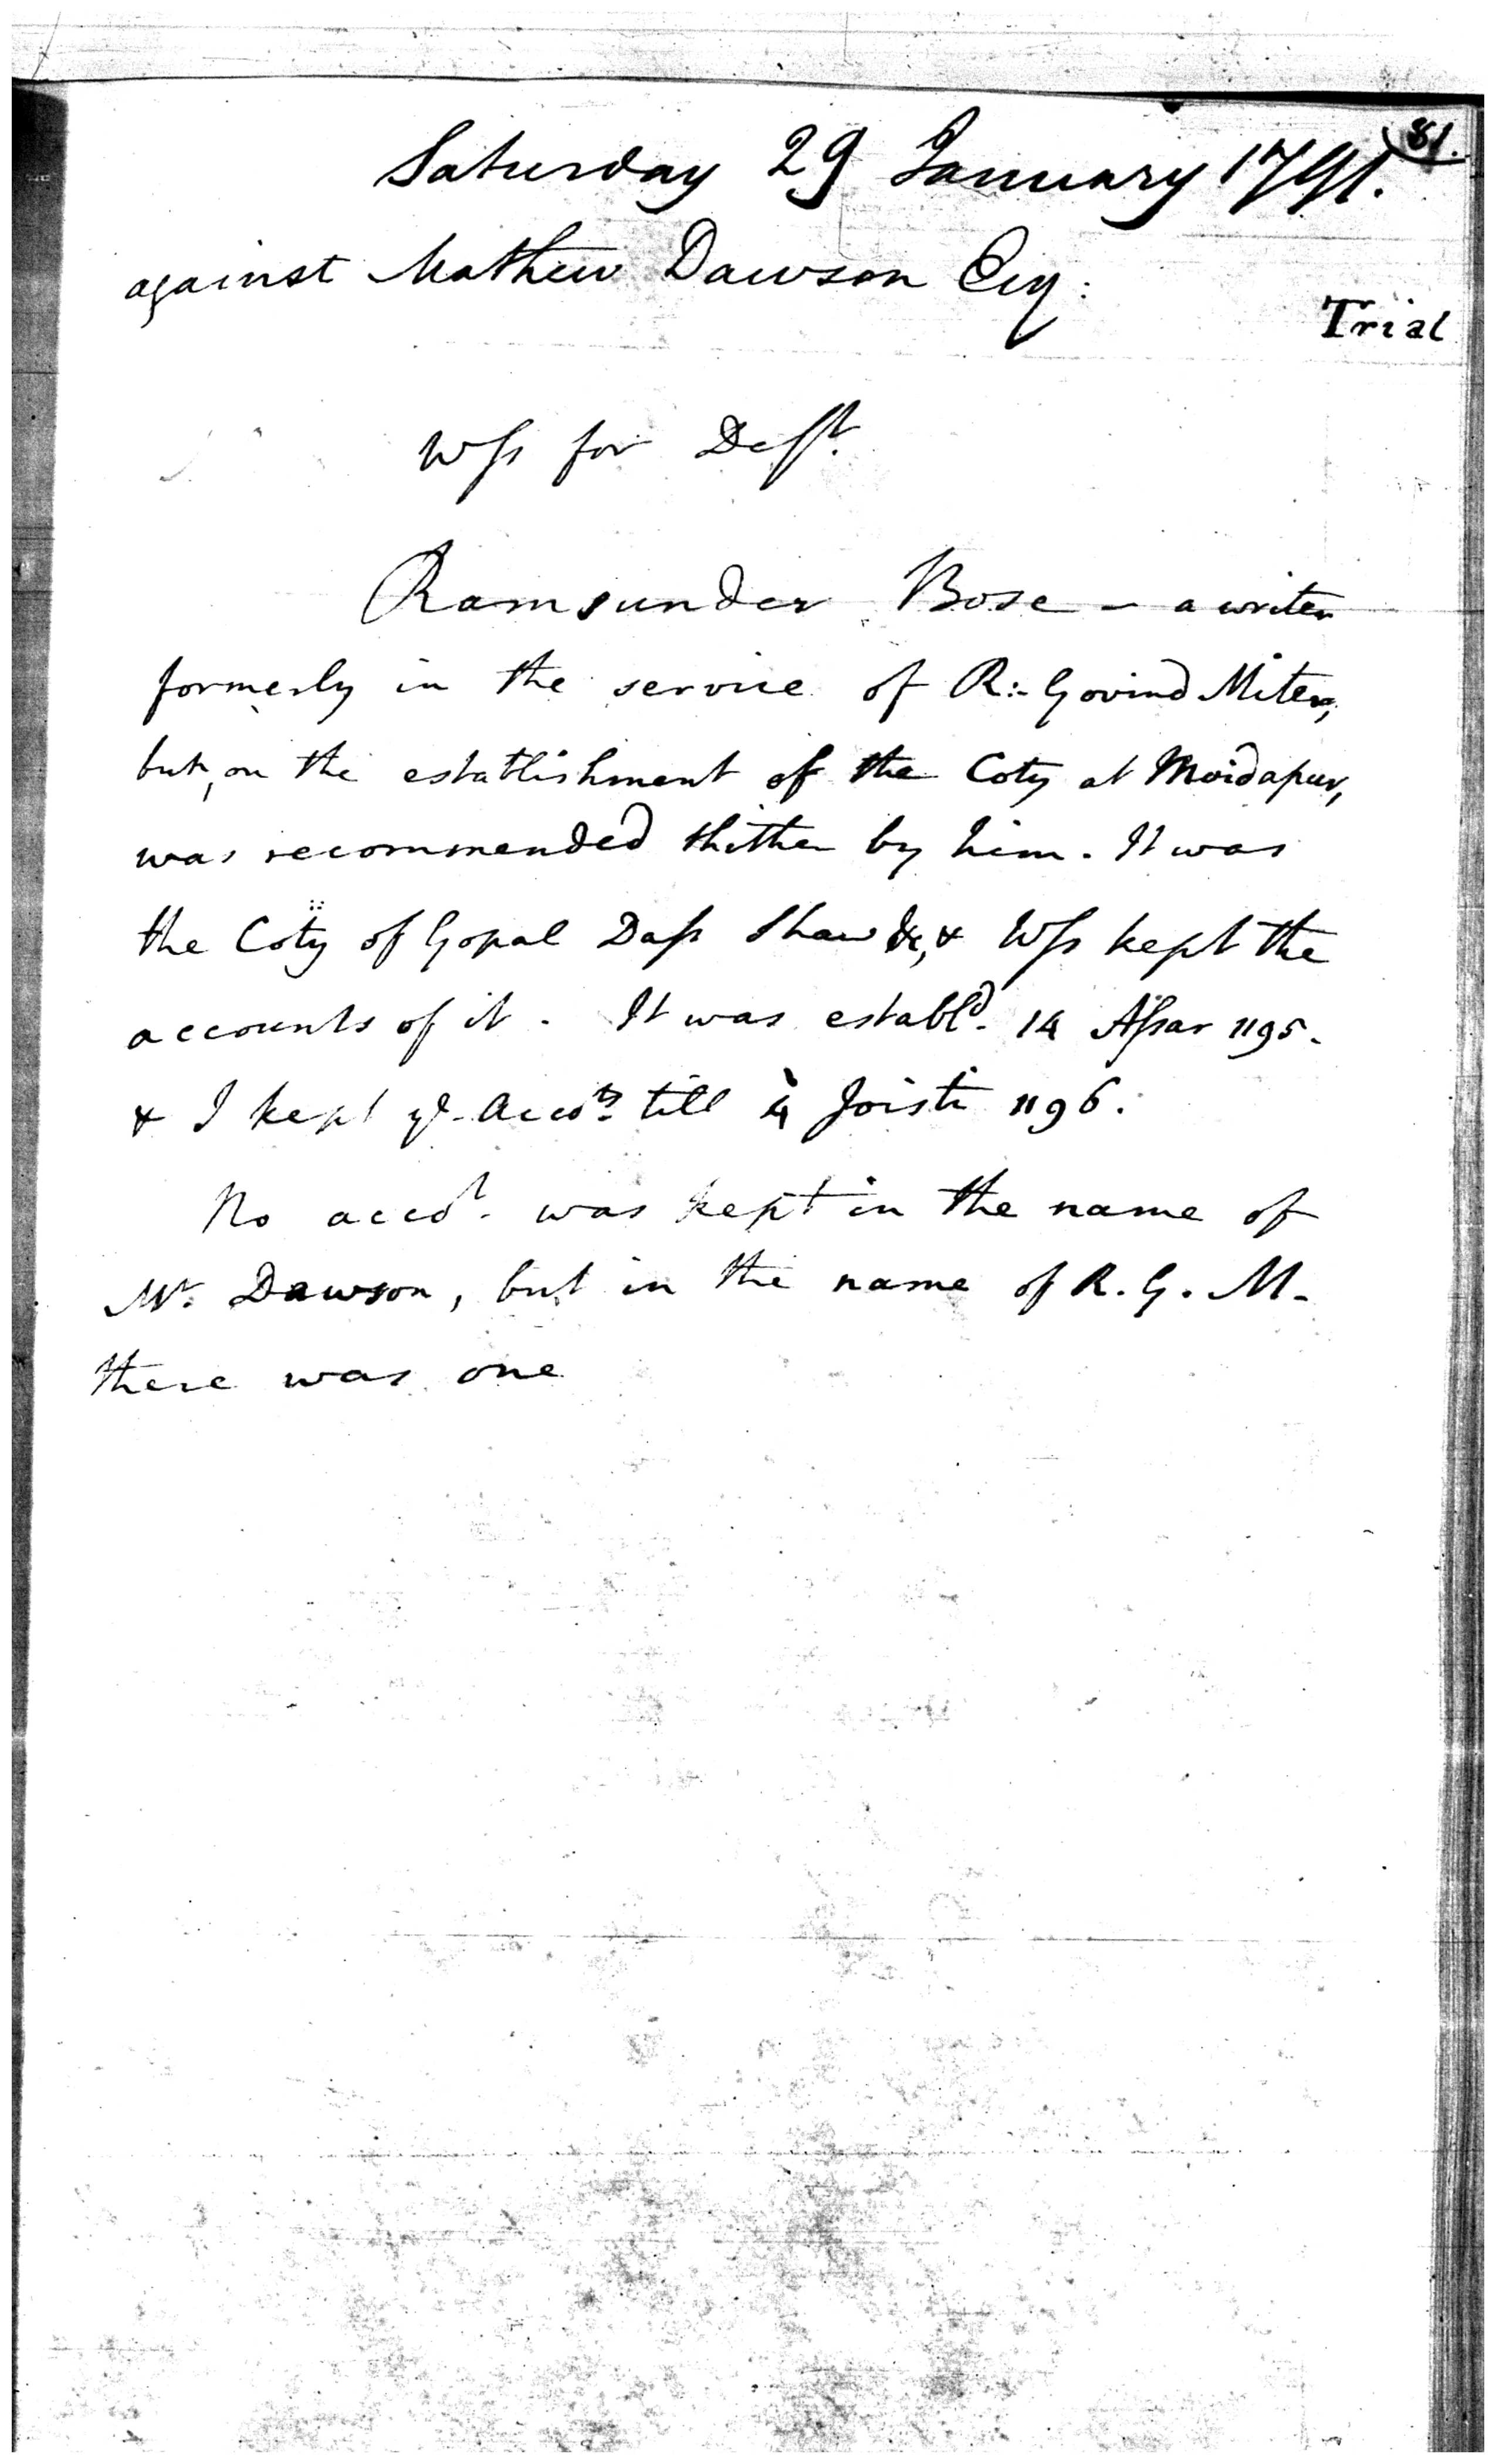 81.
Saturday 29 January 1791.
against Mathew Dawson Esq:
Trial
Wſs for Defᵗ.
Ramsunder Bose – a writer
formerly in the service of R:- Govind Miter,
but, on the establishment of the Coty at Moidapur,
was recommended thither by him. It was
the Coty of Gopal Daſs Shaw &c, & Wſs kept the
accounts of it. It was establᵈ. 14 Aſsar 1195.
& I kept yᵉ Accoᵗˢ till 4 Joisti 1196.
No accoᵗ. was kept in the name of
Mʳ. Dawson, but in the name of R. G. M.
there was one